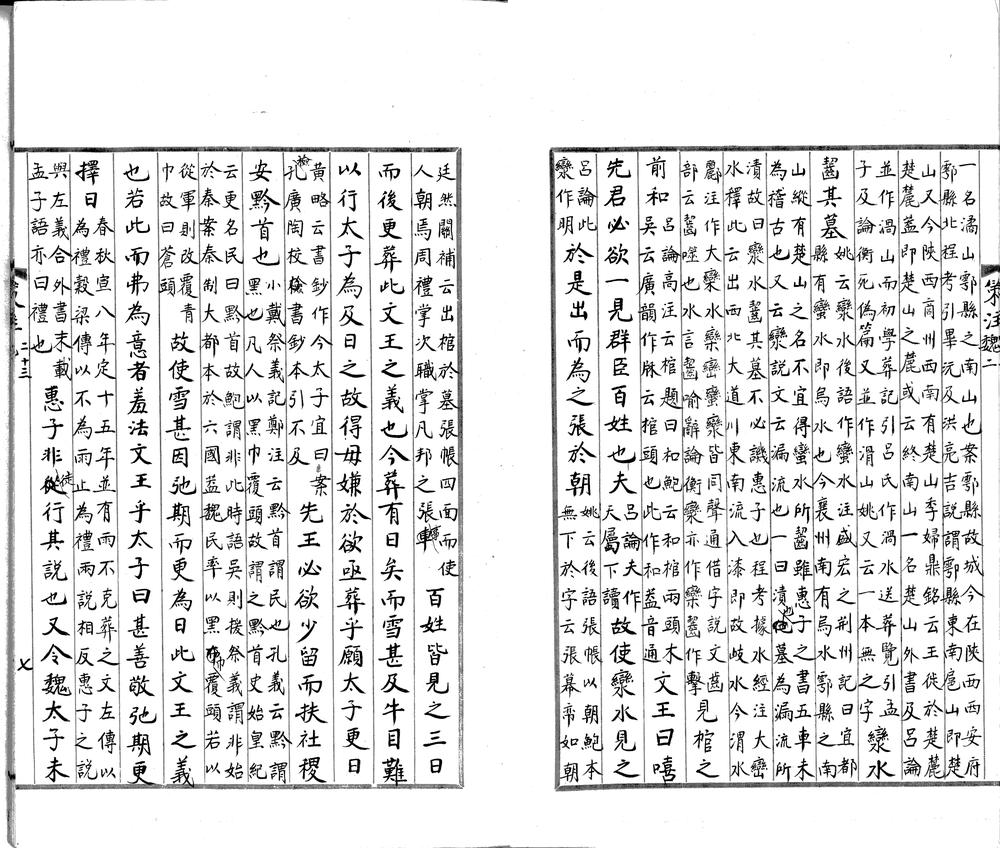 策注魏二
一名潏山鄠縣之南山也案鄠縣故城今在陝西西安府
鄠縣北程考引畢沅及洪亮吉說謂鄠縣東南扈山即楚
山又今陝西商州西南有楚山季婦鼎銘云王徙於楚麓
楚麓蓋即楚山之麓或云終南山一名楚山外書及呂論
並作渦山而初學葬記引呂氏作渦水送葬覽引孟
子及論衡死偽篇又並作滑山姚又云一本無之字 欒水
齧其墓 姚云欒水後語作蠻水注盛宏之荆州記曰宜都
縣有蠻水即烏水也今襄州南有烏水鄠縣之南
山縱有楚山之名不宜得蠻水所齧雖惠子之書五車未
為稽古也又云欒說文云漏流也一曰漬也墓為漏流所
漬故曰欒水齧其墓不必譏惠子也程考據水經注大巒
水擇此云出西北大道川東南流入漆即故岐水今渭水
酈注作大欒水欒巒蠻欒皆同聲通借字說文齒
部云齧噬也水言齧喻辭論衡欒亦作欒齧作擊 見棺之
前和 呂論高注云棺題曰和鮑云和棺兩頭木
吳云廣韻作㭋云棺頭也此作和蓋音通 文王曰嘻
先君必欲一見群臣百姓也夫 呂論夫作
天屬下讀 故使欒水見之
呂論此
欒作明 於是出而為之張於朝 姚云後語張帳以朝鮑本
無下於字云張幕帟如朝
廷然關補云出棺於墓張帳四面而使
人朝焉周禮掌次職掌凡邦之張事 百姓皆見之三日
而後更葬此文王之義也今葬有日矣而雪甚及牛目難
以行太子為及日之故得毋嫌於欲亟葬乎願太子更日
黃略云書鈔作今太子宜曰案
孔廣陶校檢書鈔本引不及 先王必欲少留而扶社稷
安黔首也 小戴祭義記鄭注云黔首謂民也孔義云黔謂
黑也凡人以黑巾覆頭故謂之黔首史始皇紀
云更名民曰黔首故鮑謂非此時語吳則援祭義謂非始
於秦案秦制大都本於六國蓋魏民率以黑布覆頭若以
從軍則改覆青
巾故曰蒼頭 故使雪甚因弛期而更為日此文王之義
也若此而弗為意者羞法文王乎太子曰甚善敬弛期更
擇日 春秋宣八年定十五年並有雨不克葬之文左傳以
為禮穀梁傳以不為雨止為禮兩說相反惠子之說
與左義合外書末載
孟子語亦曰禮也 惠子非徒行其說也又令魏太子未
二十三
七